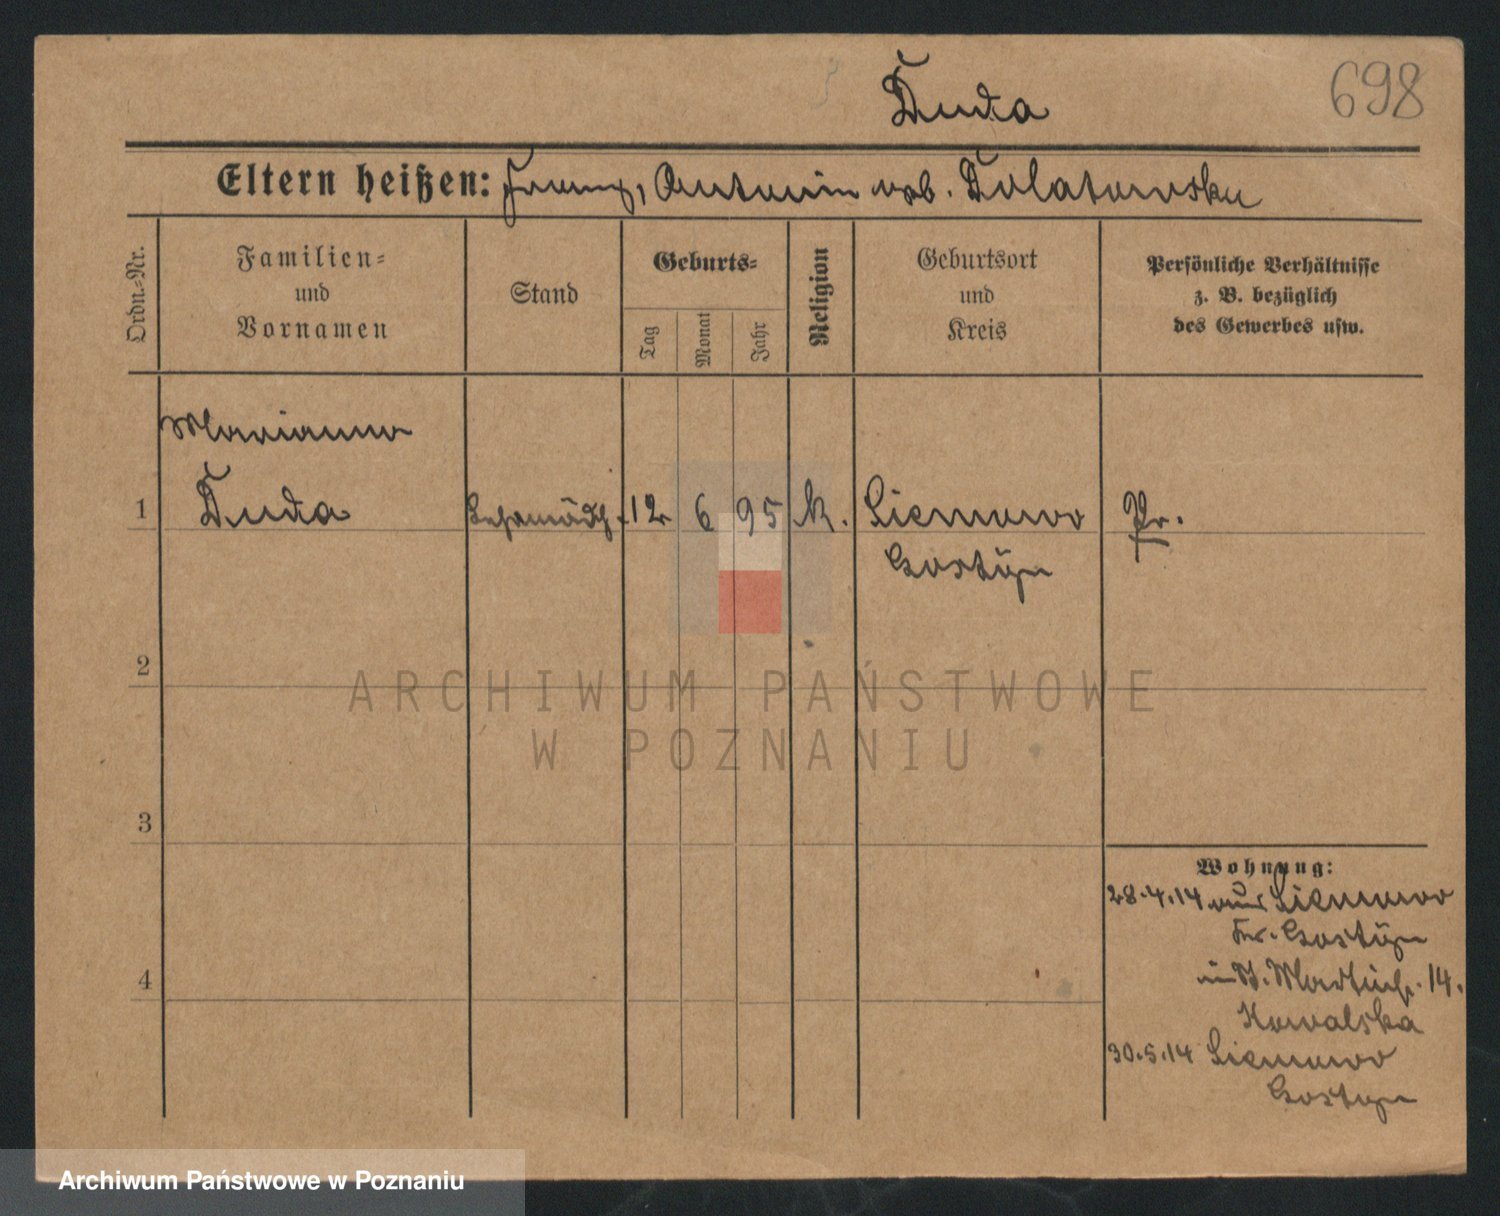 Duda
698
Eltern heißen: Franz, Antonin geb. Dolatowska
Ordn.-Nr.
Familien-
und
Vornamen
Stand
Geburts-
Tag
Monat
Jahr
Religion
Geburtsort
und
Kreis
Persönliche Verhältnisse
z. B. bezüglich
des Gewerbes usw.
Marianna
1 Duda Lehrmädch. 12 6 95 k. Siemowo Pr.
Gostyn
2
ARCHIWUM PAŃSTWOWE
W POZNANIU
3
Wohnung:
28.4.14 aus Siemowo
Kr. Gostyn
14.
4
Kowalska
30.5.14 Siemowo
Gostyn
Archiwum Państwowe w Poznaniu